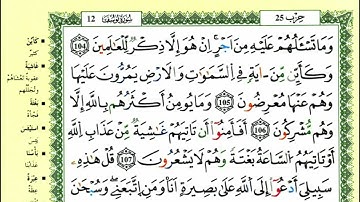 حزب 25
سورة يوسف 12
وَمَا تَسْـَٔلُهُمْ عَلَيْهِ مِنْ أَجْرٍ إِنْ هُوَ إِلَّا ذِكْرٌ لِّلْعَٰلَمِينَ 104
وَكَأَيِّن مِّنْ ءَايَةٍ فِي السَّمَٰوَٰتِ وَالْأَرْضِ يَمُرُّونَ عَلَيْهَا
وَهُمْ عَنْهَا مُعْرِضُونَ 105 وَمَا يُومِنُ أَكْثَرُهُم بِاللَّهِ إِلَّا
وَهُم مُّشْرِكُونَ 106 أَفَأَمِنُوا أَن تَاتِيَهُمْ غَٰشِيَةٌ مِّنْ عَذَابِ اللَّهِ
أَوْ تَاتِيَهُمُ السَّاعَةُ بَغْتَةً وَهُمْ لَا يَشْعُرُونَ 107 قُلْ هَٰذِهِ
سَبِيلِيَ أَدْعُوا إِلَى اللَّهِ عَلَىٰ بَصِيرَةٍ أَنَا وَمَنِ اتَّبَعَنِي وَسُبْحَٰنَ
كأيّن
كثير
غاشية
عقوبة تغشاهم
وتجلّلهم
بغتة
فجأة
استيأس
يئس
بأسنا
عذابنا
عبرة
عظة